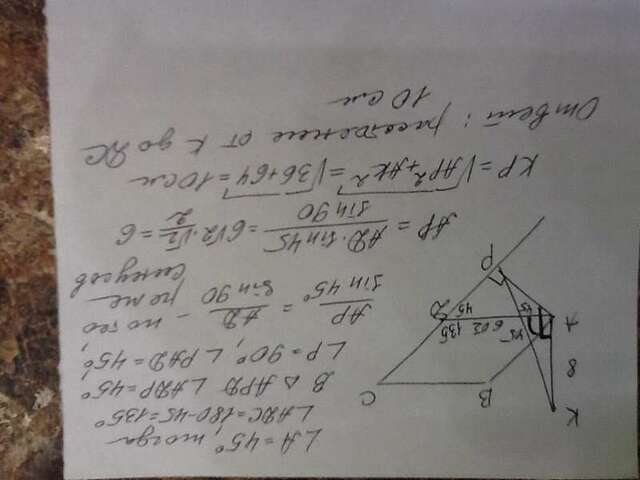 ∠A = 45°, тогда
∠ADC = 180 - 45 = 135°
В △ APD ∠ADP = 45°
∠P = 90°, ∠PAD = 45°,
AP / sin 45° = AD / sin 90 - по тео
реме
синусов
AP = AD · sin 45 / sin 90 = 6√2 · √2 / 2 = 6
KP = √AP² + AK² = √36 + 64 = 10 см
Ответ: расстояние от K до DC
10 см
K
8
A
B
C
D
P
45
45
45
135
6√2